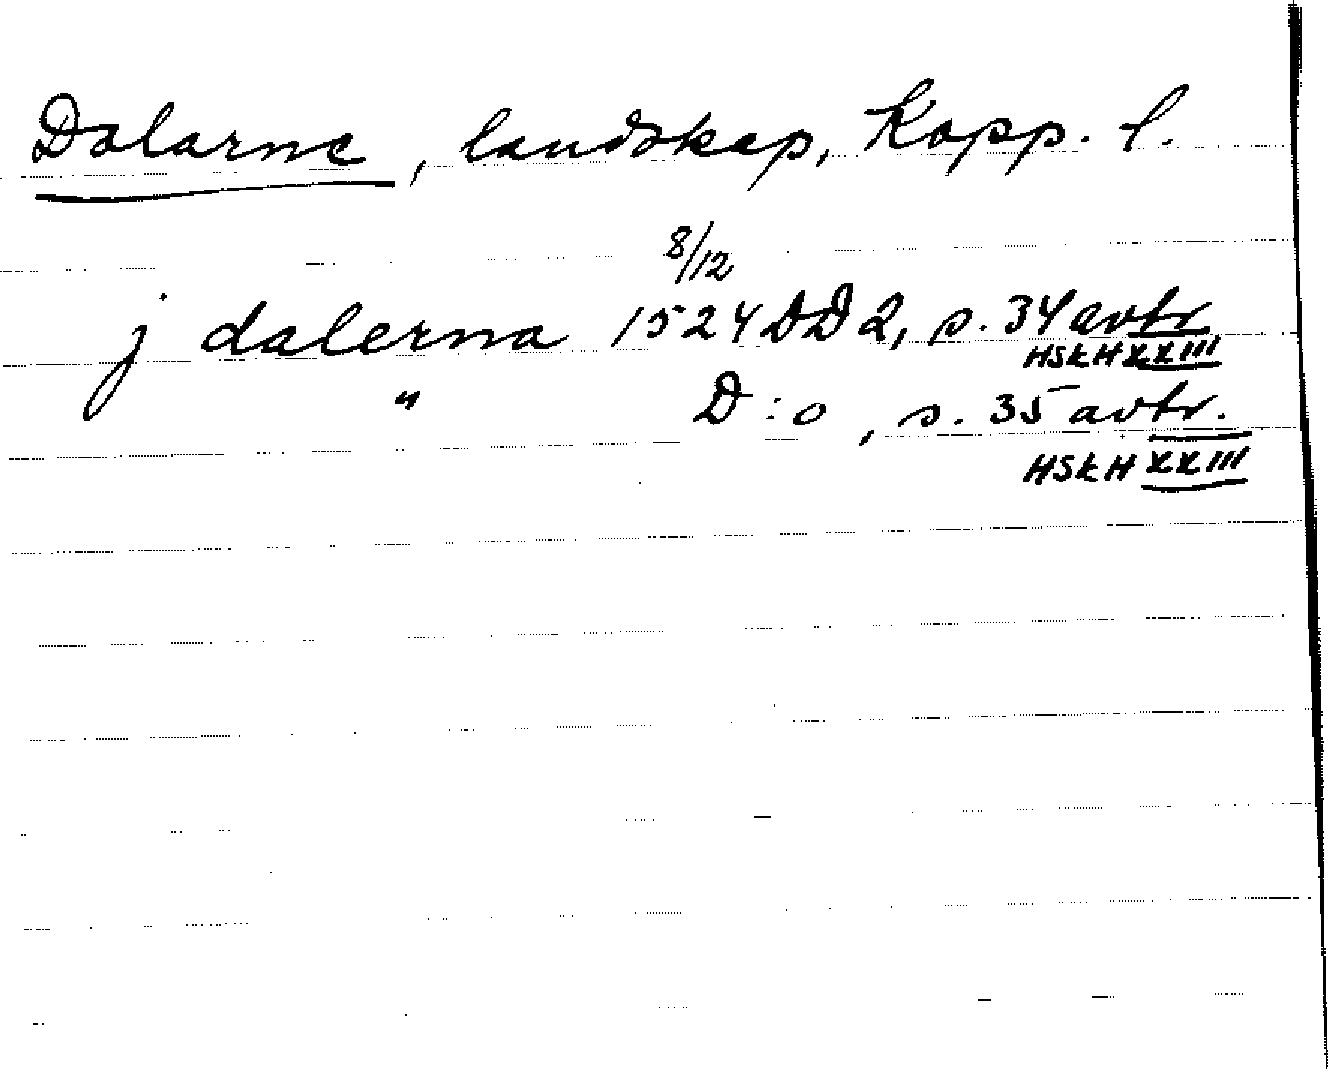 Dalarne, landskap, Kopp. l.
8/12
j dalerna 1524 DD 2, s. 34 avtr
HSkH XXIII
" D:o, s. 35 avtr.
HSkH XXIII